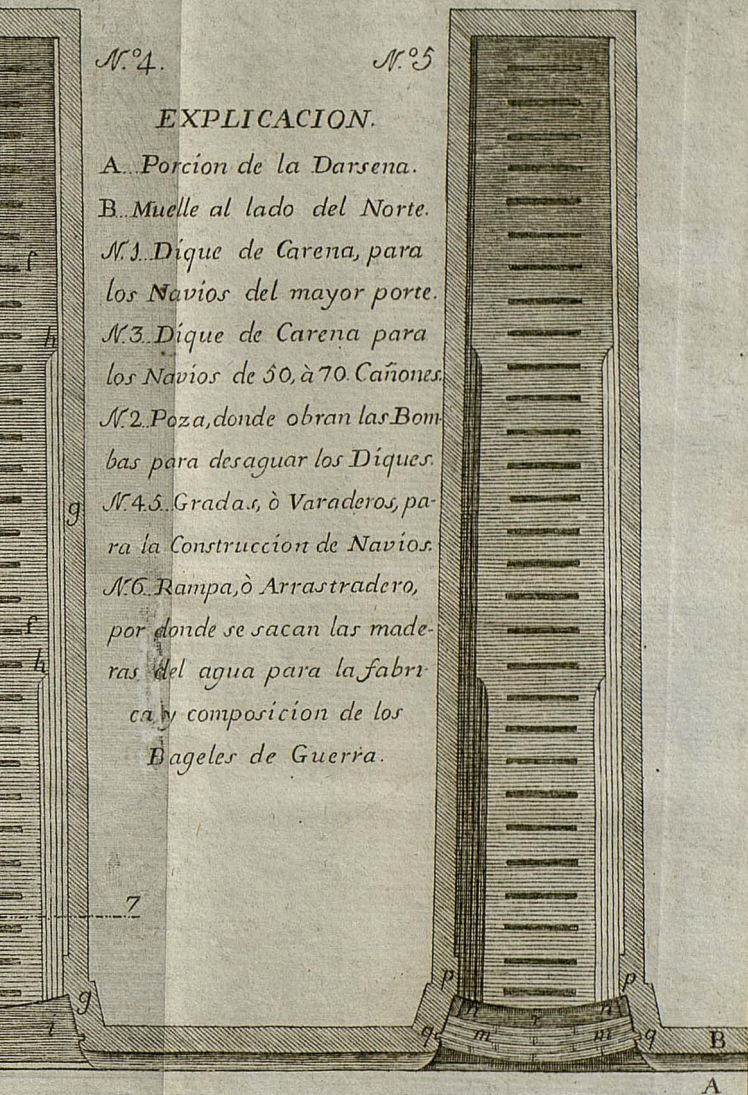 N.º 4.
N.º 5
EXPLICACION.
A...Porcion de la Darsena.
B...Muelle al lado del Norte.
N.1...Dique de Carena, para
los Navios del mayor porte.
N.3..Dique de Carena para
los Navios de 50, à 70. Cañones.
N.2..Poza, donde obran las Bom-
bas para desaguar los Diques.
N.4.5..Gradas, ò Varaderos, pa-
ra la Construccion de Navios.
N.6..Rampa, ò Arrastradero,
por donde se sacan las made-
ras del agua para la fabri-
ca, y composicion de los
Bageles de Guerra.
f
h
g
f
h
7
g
i
p
p
n
r
n
q
m
m
q
B
A